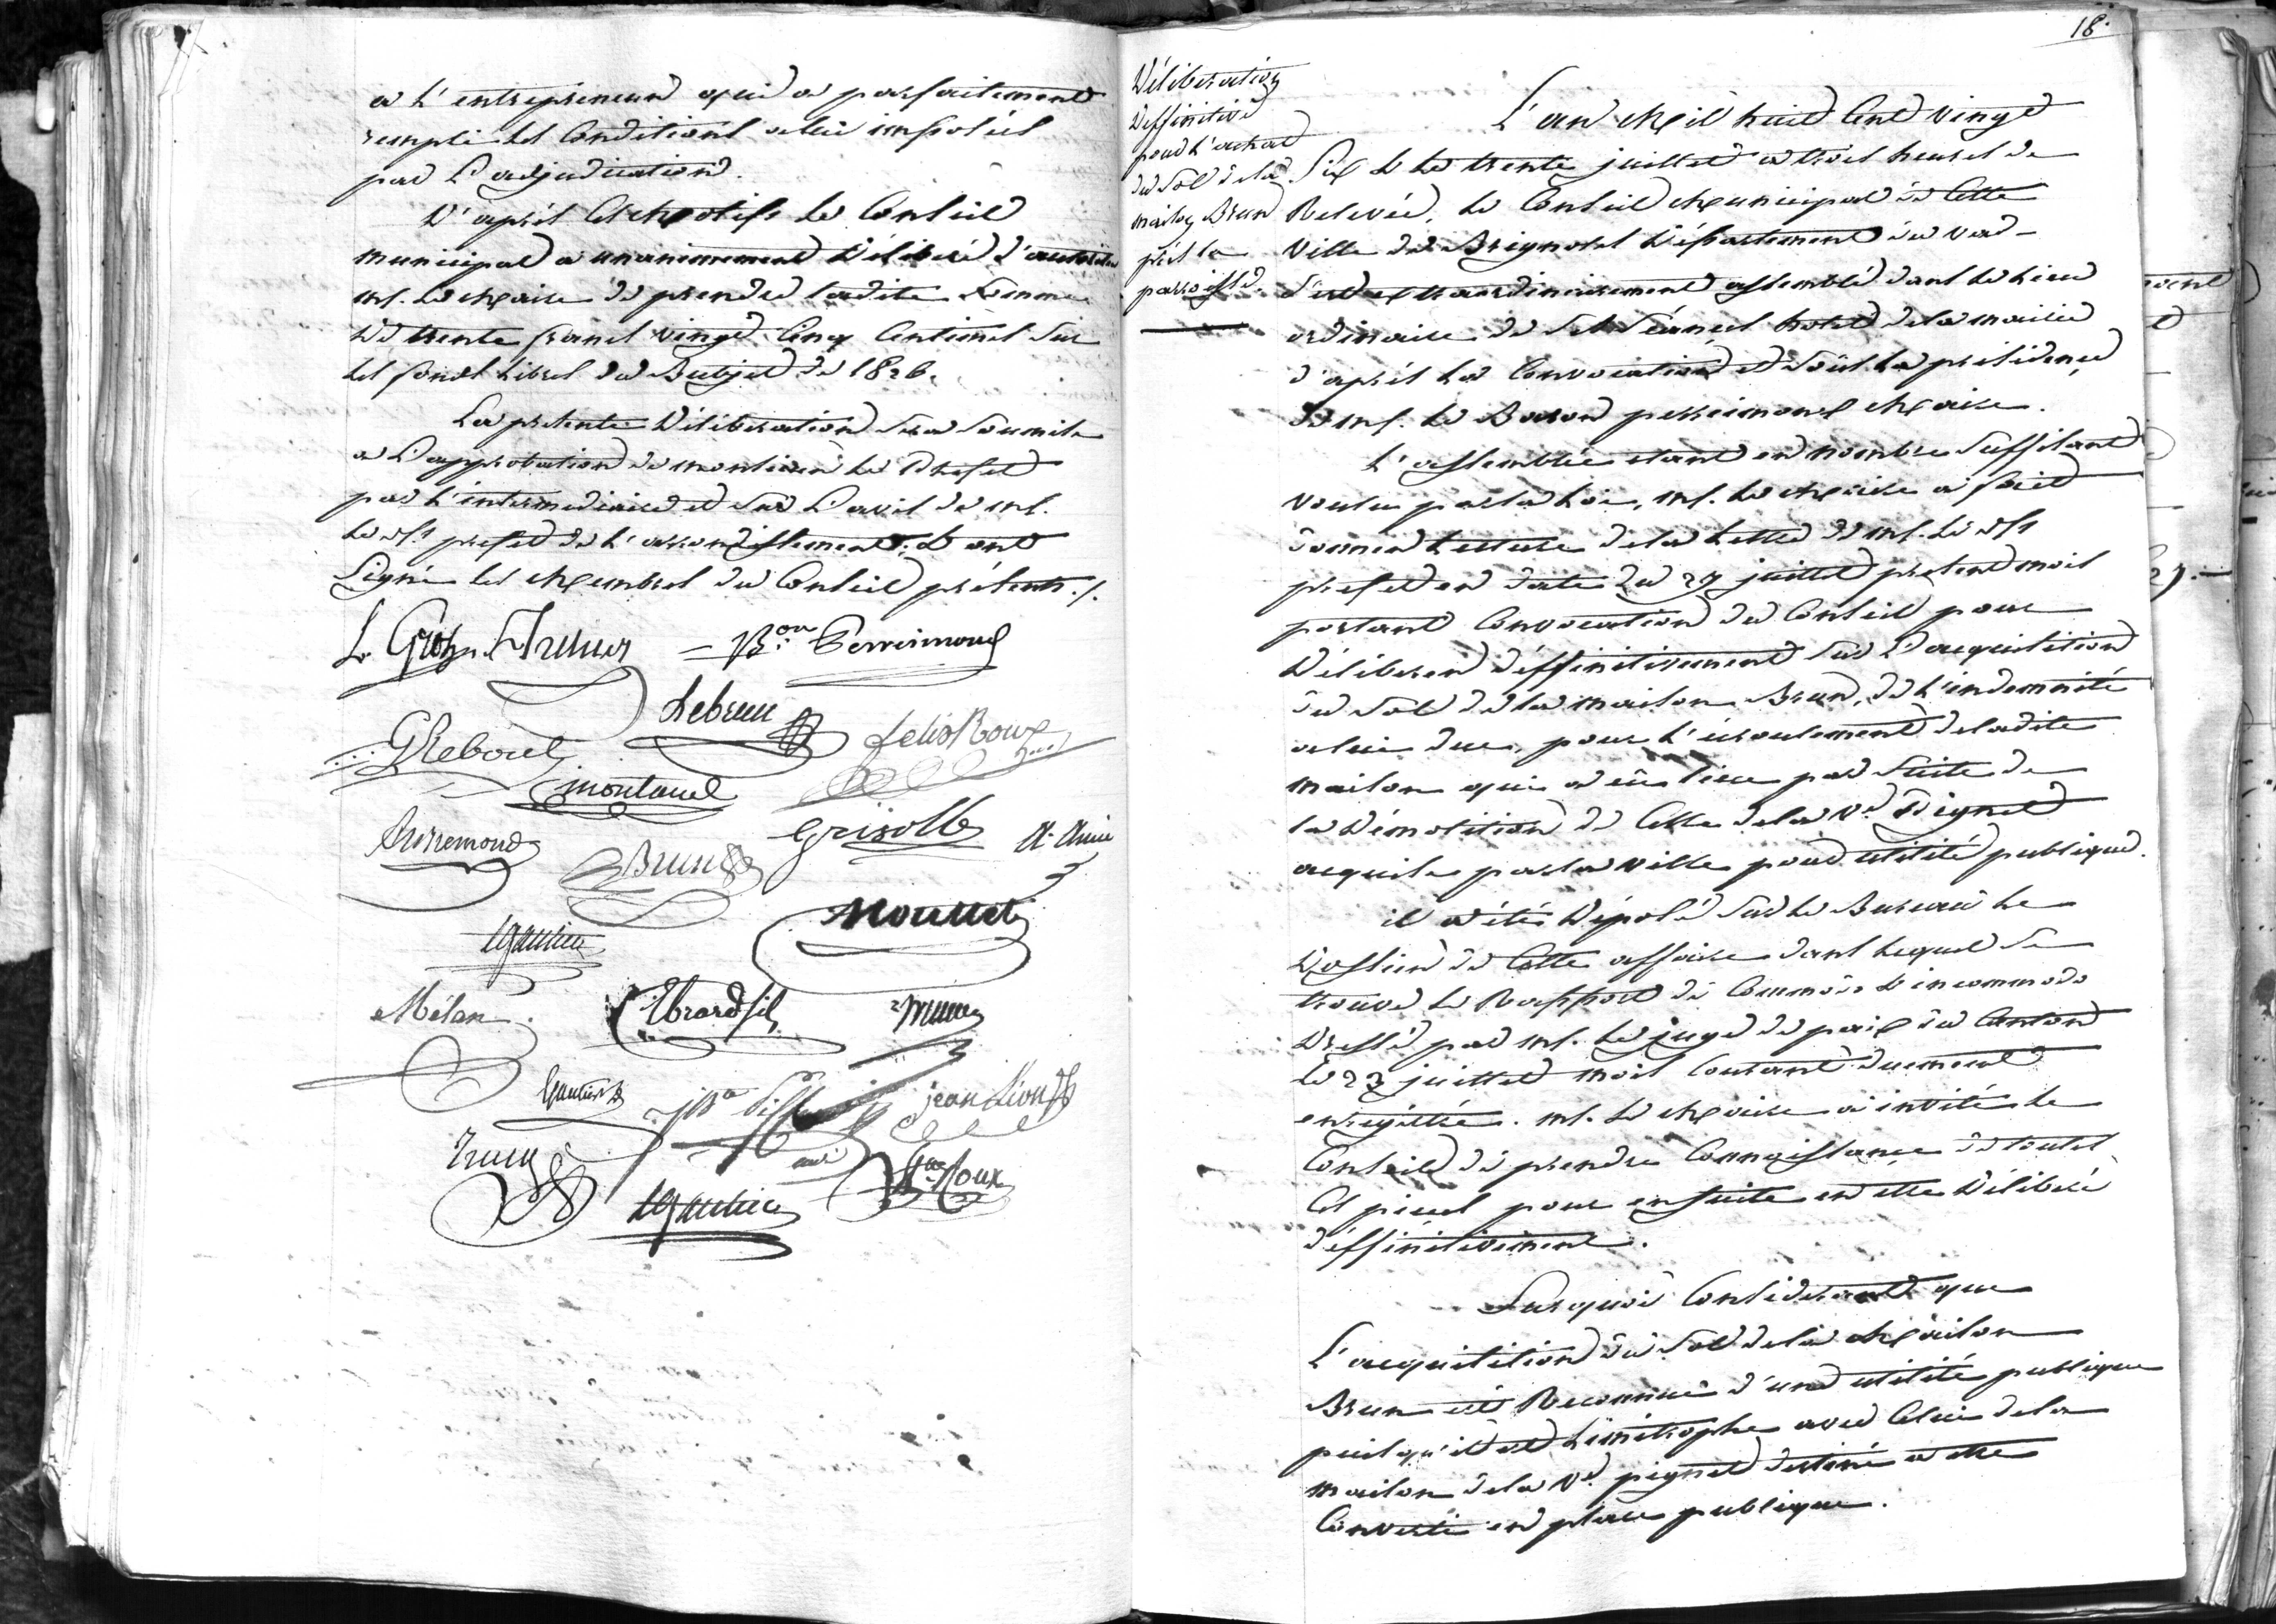 a L'entrepreneur qui a parfaitement
rempli les Conditions a lui imposées
par L'adjudication.
D'après Ces Motifs Le Conseil
municipal a unanimement Délibéré d'autoriser
mr. Le Maire de prendre ladite Somme
De trente francs vingt Cinq Centimes Sur
les fonds Libres du Budjet de 1826.
La presente Déliberation Sera Soumise
a L'approbation de monsieur Le Prefet
par L'intermediaire et Sur L'avis de mr.
Le Ss prefet de L'arrondissement; Et ont
Signé les Membres du Conseil présents ./.
Bon Perreimond
Lebrun
G Reboul felix Roux
montaud
Grisolle
Brun
Gautier Mouttet
Mélan Ebrard fils
Gautier jean Leon
Roux
Gautier
18.
Déliberation
Deffinitive
pour L'achat
du Sol de la
maison Brun
près la
parroisse.
L'an Mil huit Cent vingt
Six & Le trente juillet a trois heures de
Relevée, Le Conseil Municipal de Cette
Ville de Brignoles Département du var
S'est extraordinairement assemblé dans Le Lieu
ordinaire de Ses Séances hotel de la mairie
d'après La Convocation et Sous La présidence
De mr. Le Baron perreimond Maire.
L'assemblée etant en nombre Suffisant
voulu par la Loi, mr. Le Maire a fait
donner Lecture de la Lettre de mr. Le Ss
prefet en date du 27 juillet present mois
portant Convocation du Conseil pour
Déliberer déffinitivement Sur L'acquisition
du Sol de la maison Brun, de L'indemnité
a lui due, pour L'écroulement de ladite
maison qui a eu lieu par Suite de
la Démolition de Celle de la Ve. Pignet
acquise par la ville pour utilité publique.
il a été Déposé Sur Le Bureau Le
Dossier de Cette affaire dans Lequel Se
trouve Le Rapport de Commodo & incommodo
Dressé par mr. Le juge de paix du Canton
Le 27 juillet mois Courant duement
enregistré. mr. Le Maire a invité Le
Conseil de prendre Connoissance de toutes
Ces pieces pour ensuite en etre Délibéré
déffinitivement.
Sur quoi Considerant que
L'acquisition du Sol de la Maison
Brun est Reconnue d'une utilité publique
puisqu'il est Limitrophe avec Celui de la
maison de la Ve. pignet destiné a etre
Converti en place publique.